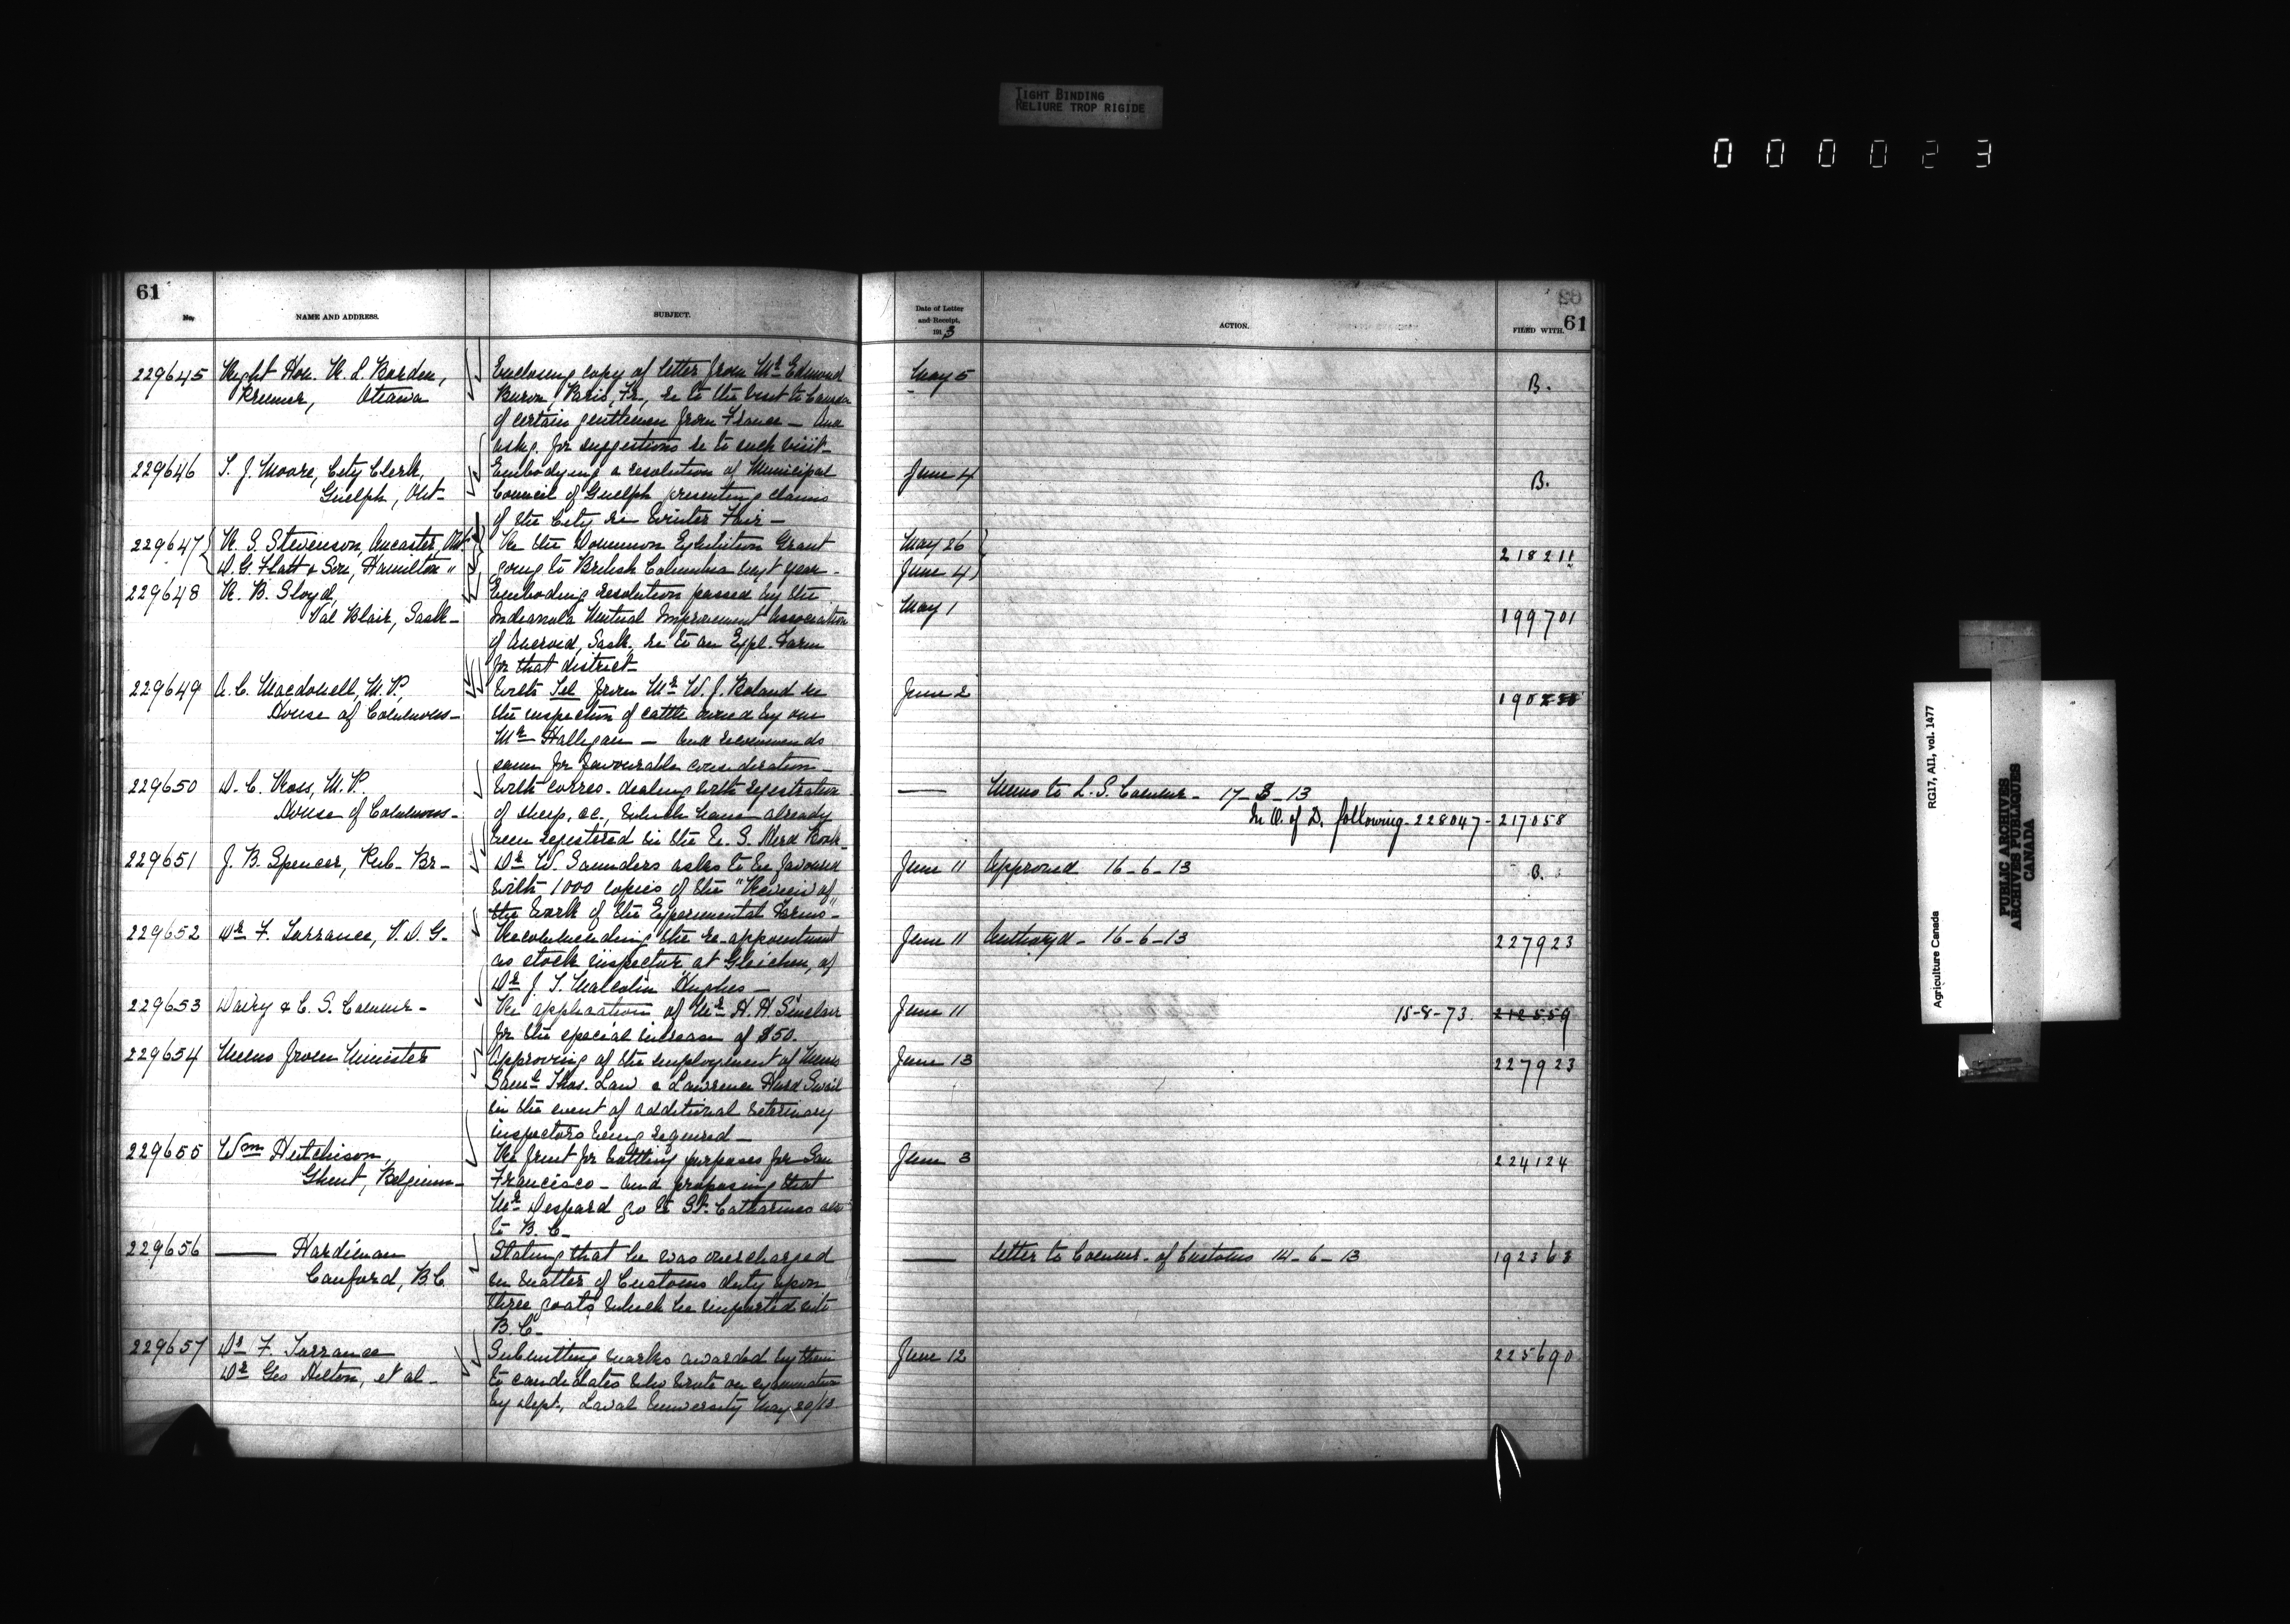 TIGHT BINDING
RELIURE TROP RIGIDE
000023
61
No.
NAME AND ADDRESS.
SUBJECT.
229645 Right Hon. R. L. Borden,
Premier, Ottawa
Enclosing copy of letter from Mr Edmond
Buron, Paris, Fr., re to the visit to Canada
of certain gentlemen from France – And
asks for suggestions re to such visit –
229646 T. J. Moore, City Clerk,
Guelph, Ont –
Embodying a resolution of Municipal
Council of Guelph presenting claims
of the City re Winter Fair –
229647 R. S. Stevenson, Ancaster, Ont
D. G. Flatt & Son, Hamilton "
Re the Dominion Exhibition Grant
going to British Columbia next year –
229648 R. B. Lloyd,
Val Blair, Sask –
Embodying resolution passed by the
Indianola Mutual Improvement Association
of Aneroid, Sask., re to an Expl. Farm
for that district –
229649 A. C. Macdonell, M.P.,
House of Commons –
With Tel from Mr W. J. Boland re
the inspection of cattle owned by one
Mr Halligan – And recommends
same for favourable consideration –
229650 D. C. Ross, M.P.
House of Commons –
With corres. dealing with registration
of sheep, &c., which have already
been registered in the U. S. Herd Book –
229651 J. B. Spencer, Pub. Br –
Dr W. Saunders asks to be favoured
with 1000 copies of the "Review of
the Work of the Experimental Farms" –
229652 Dr F. Torrance, V. D. G.
Recommending the re-appointment
as stock inspector at Gleichen, of
Dr J. T. Malcolm Hughes –
229653 Dairy & C. S. Commr –
Re application of Mr H. H. Sinclair
for the special increase of $50.
229654 Memo from Minister
Approving of the employment of Messrs
Saml Thos. Law & Lawrence Herd Swail
in the event of additional veterinary
inspectors being required –
229655 Wm Hutchison,
Ghent, Belgium –
Re fruit for bottling purposes for San
Francisco – And proposing that
Mr Despard go to St. Catharines also
to B. C –
229656 —— Hardiman
Canford, B.C
Stating that he was overcharged
in matter of Customs duty upon
three goats which he imported into
B. C –
229657 Dr F. Torrance
Dr Geo Hilton, et al –
Submitting marks awarded by them
to candidates who wrote on examination
by dept., Laval University May 20/13
Date of Letter
and Receipt,
1913
ACTION.
FILED WITH.
61
May 5 B.
June 4 B.
May 26
June 4 218211
May 1 199701
June 2
—— Memo to L. S. Commr – 17-3-13
In O. of D. following 228047 – 217058
June 11 Approved 16-6-13 B.
June 11 Authorzd – 16-6-13 227923
June 11 15-8-73. 212559
June 13 227923
June 3 224124
—— Letter to Commr. of Customs 14-6-13 192363
June 12 225690
Agriculture Canada RG17, AII, vol. 1477
PUBLIC ARCHIVES
ARCHIVES PUBLIQUES
CANADA